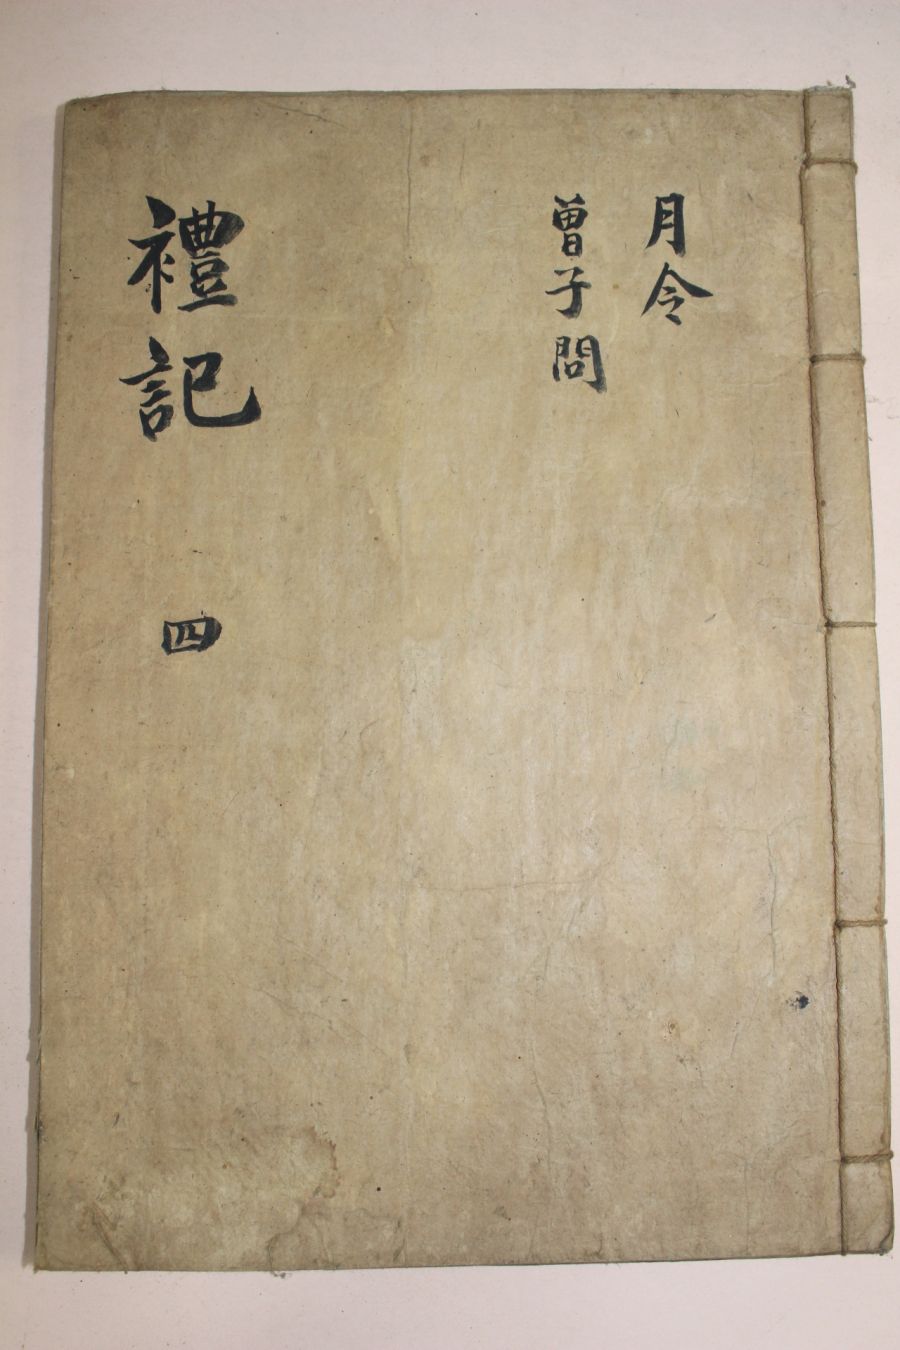 月令
曾子問
禮記 四